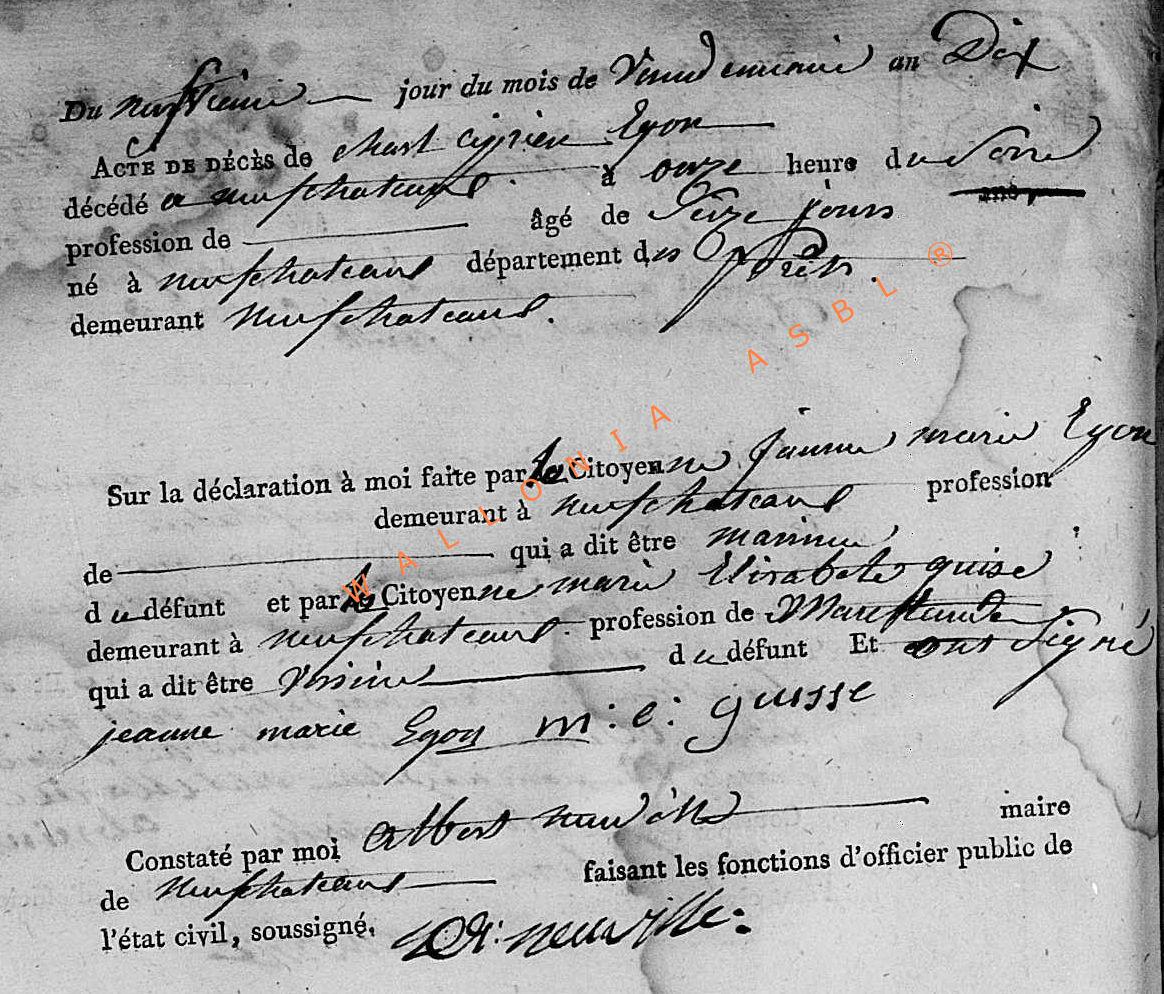 Du neufvieme jour du mois de Vendemiaire an Dix
ACTE DE DÉCÈS de charl ciprien Egon
décédé a neufchateaus à onze heure du Soire
profession de âgé de Seize jours
né à neufchateaus département des forêts
demeurant neufchateaus.
Sur la déclaration à moi faite par la Citoyenne jeanne marie Egon
demeurant à neufchateaus profession
de qui a dit être marinne
du défunt et par la Citoyenne marie Elisabete guise
demeurant à neufchateaus profession de Marchande
qui a dit être Voisine du défunt Et ont Signé
jeanne marie Egon m: e: guisse
Constaté par moi albert neuville maire
de neufchateaus faisant les fonctions d'officier public de
l'état civil, soussigné. neuville.
WALLONIA ASBL ®